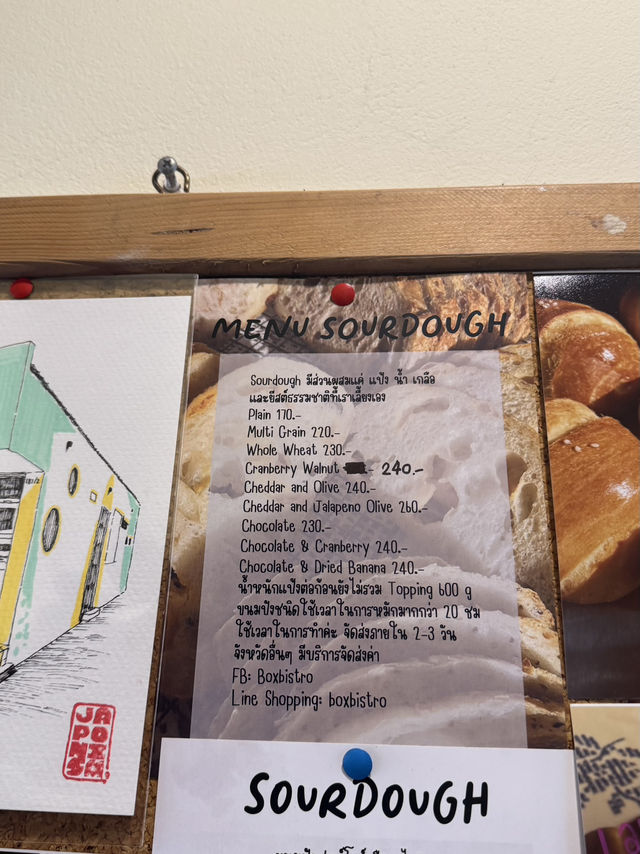 MENU SOURDOUGH
Sourdough มีส่วนผสมแค่ แป้ง น้ำ เกลือ
และยีสต์ธรรมชาติที่เราเลี้ยงเอง
Plain 170.-
Multi Grain 220.-
Whole Wheat 230.-
Cranberry Walnut 240.-
Cheddar and Olive 240.-
Cheddar and Jalapeno Olive 260.-
Chocolate 230.-
Chocolate & Cranberry 240.-
Chocolate & Dried Banana 240.-
น้ำหนักแป้งต่อก้อนยังไม่รวม Topping 600 g
ขนมปังชนิดใช้เวลาในการหมักมากกว่า 20 ชม
ใช้เวลาในการทำค่ะ จัดส่งภายใน 2-3 วัน
จังหวัดอื่นๆ มีบริการจัดส่งค่า
FB: Boxbistro
Line Shopping: boxbistro
SOURDOUGH